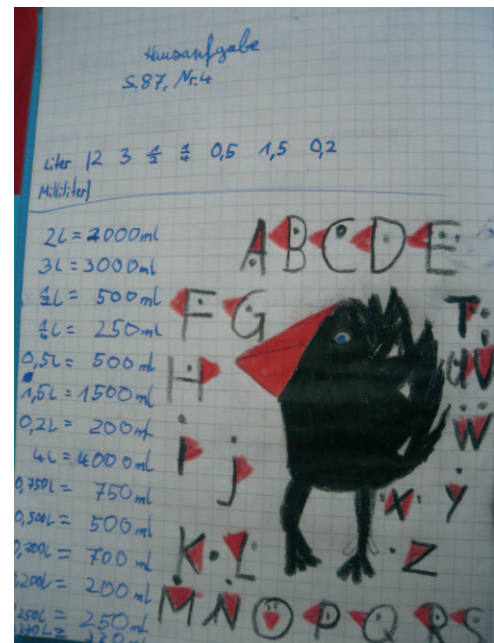 Hausaufgabe
S.87, Nr.4
Liter | 2 3 1/2 1/4 0,5 1,5 0,2
Milliliter |
2L = 2000ml
3L = 3000ml
1/2L = 500ml
1/4L = 250ml
0,5L = 500ml
1,5L = 1500ml
0,2L = 200ml
4L = 4000ml
0,750L = 750ml
0,500L = 500ml
0,700L = 700ml
0,200L = 200ml
250L = 250ml
A B C D E
F G
H
i j
K L
M N O P Q R S
T
U V
W
X Y
Z